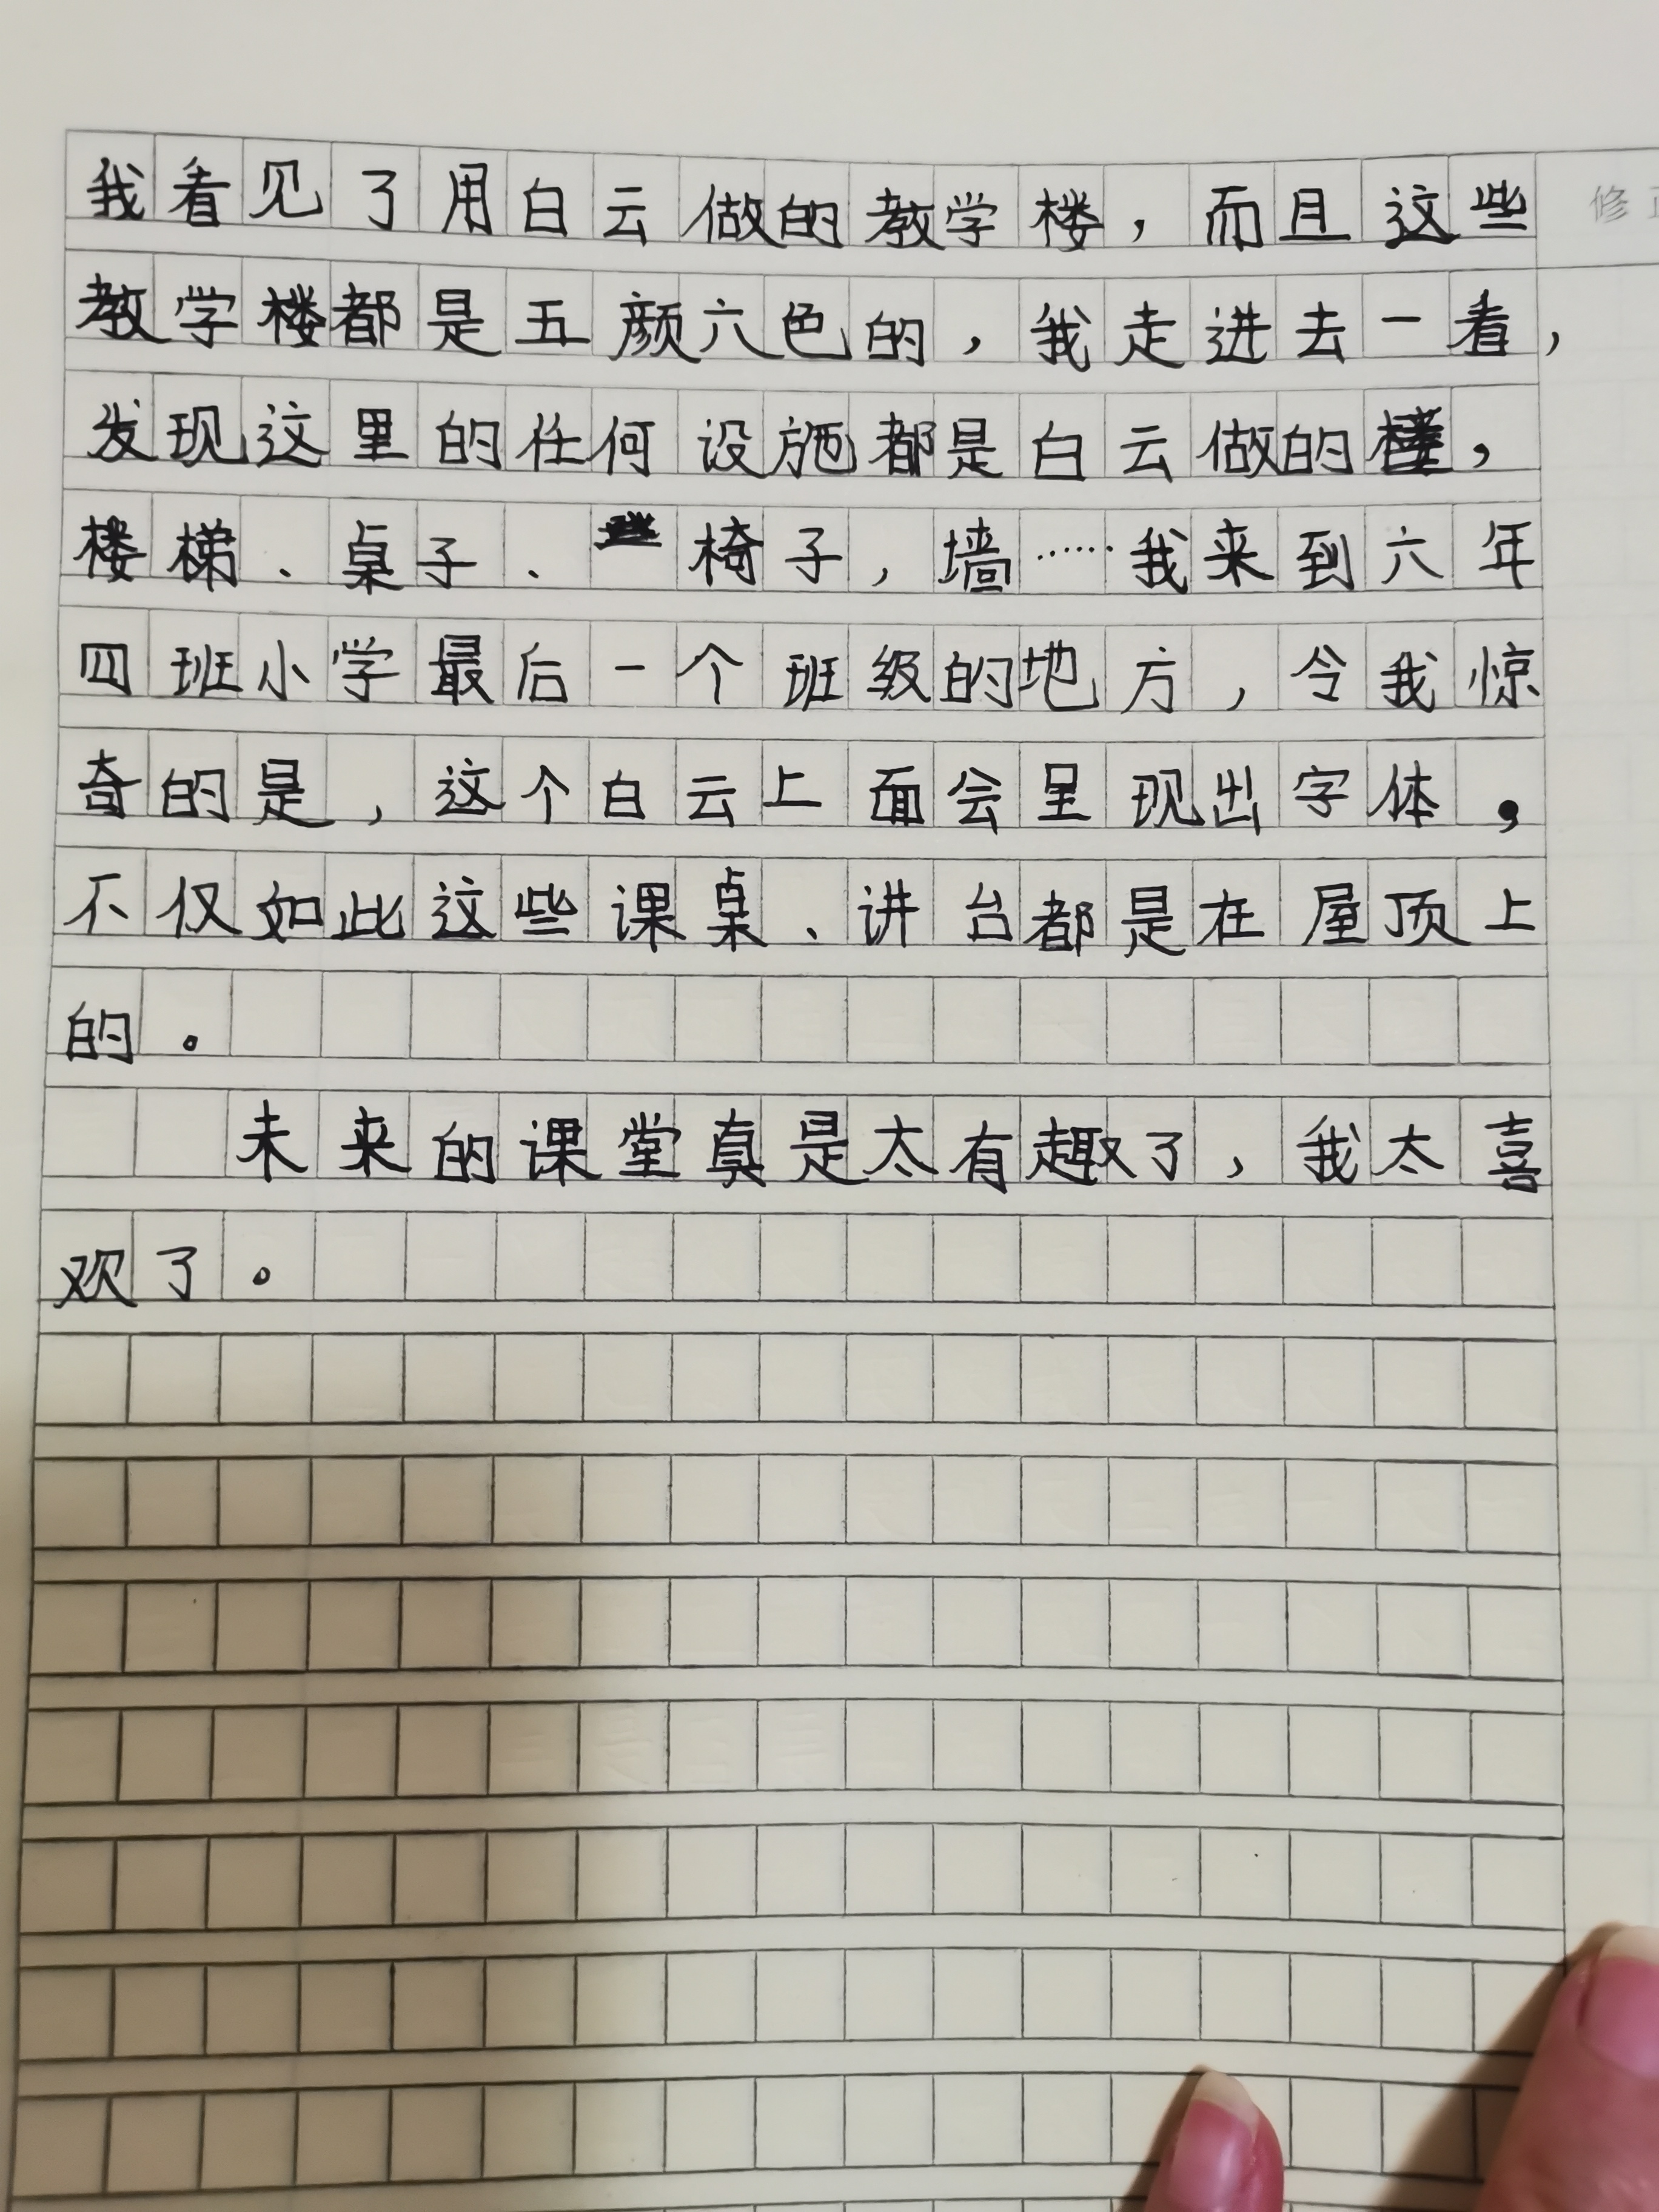 我看见了用白云做的教学楼，而且这些
修
教学楼都是五颜六色的，我走进去一看，
发现这里的任何设施都是白云做的，
楼梯、桌子、椅子，墙……我来到六年
四班小学最后一个班级的地方，令我惊
奇的是，这个白云上面会呈现出字体，
不仅如此这些课桌、讲台都是在屋顶上
的。
未来的课堂真是太有趣了，我太喜
欢了。